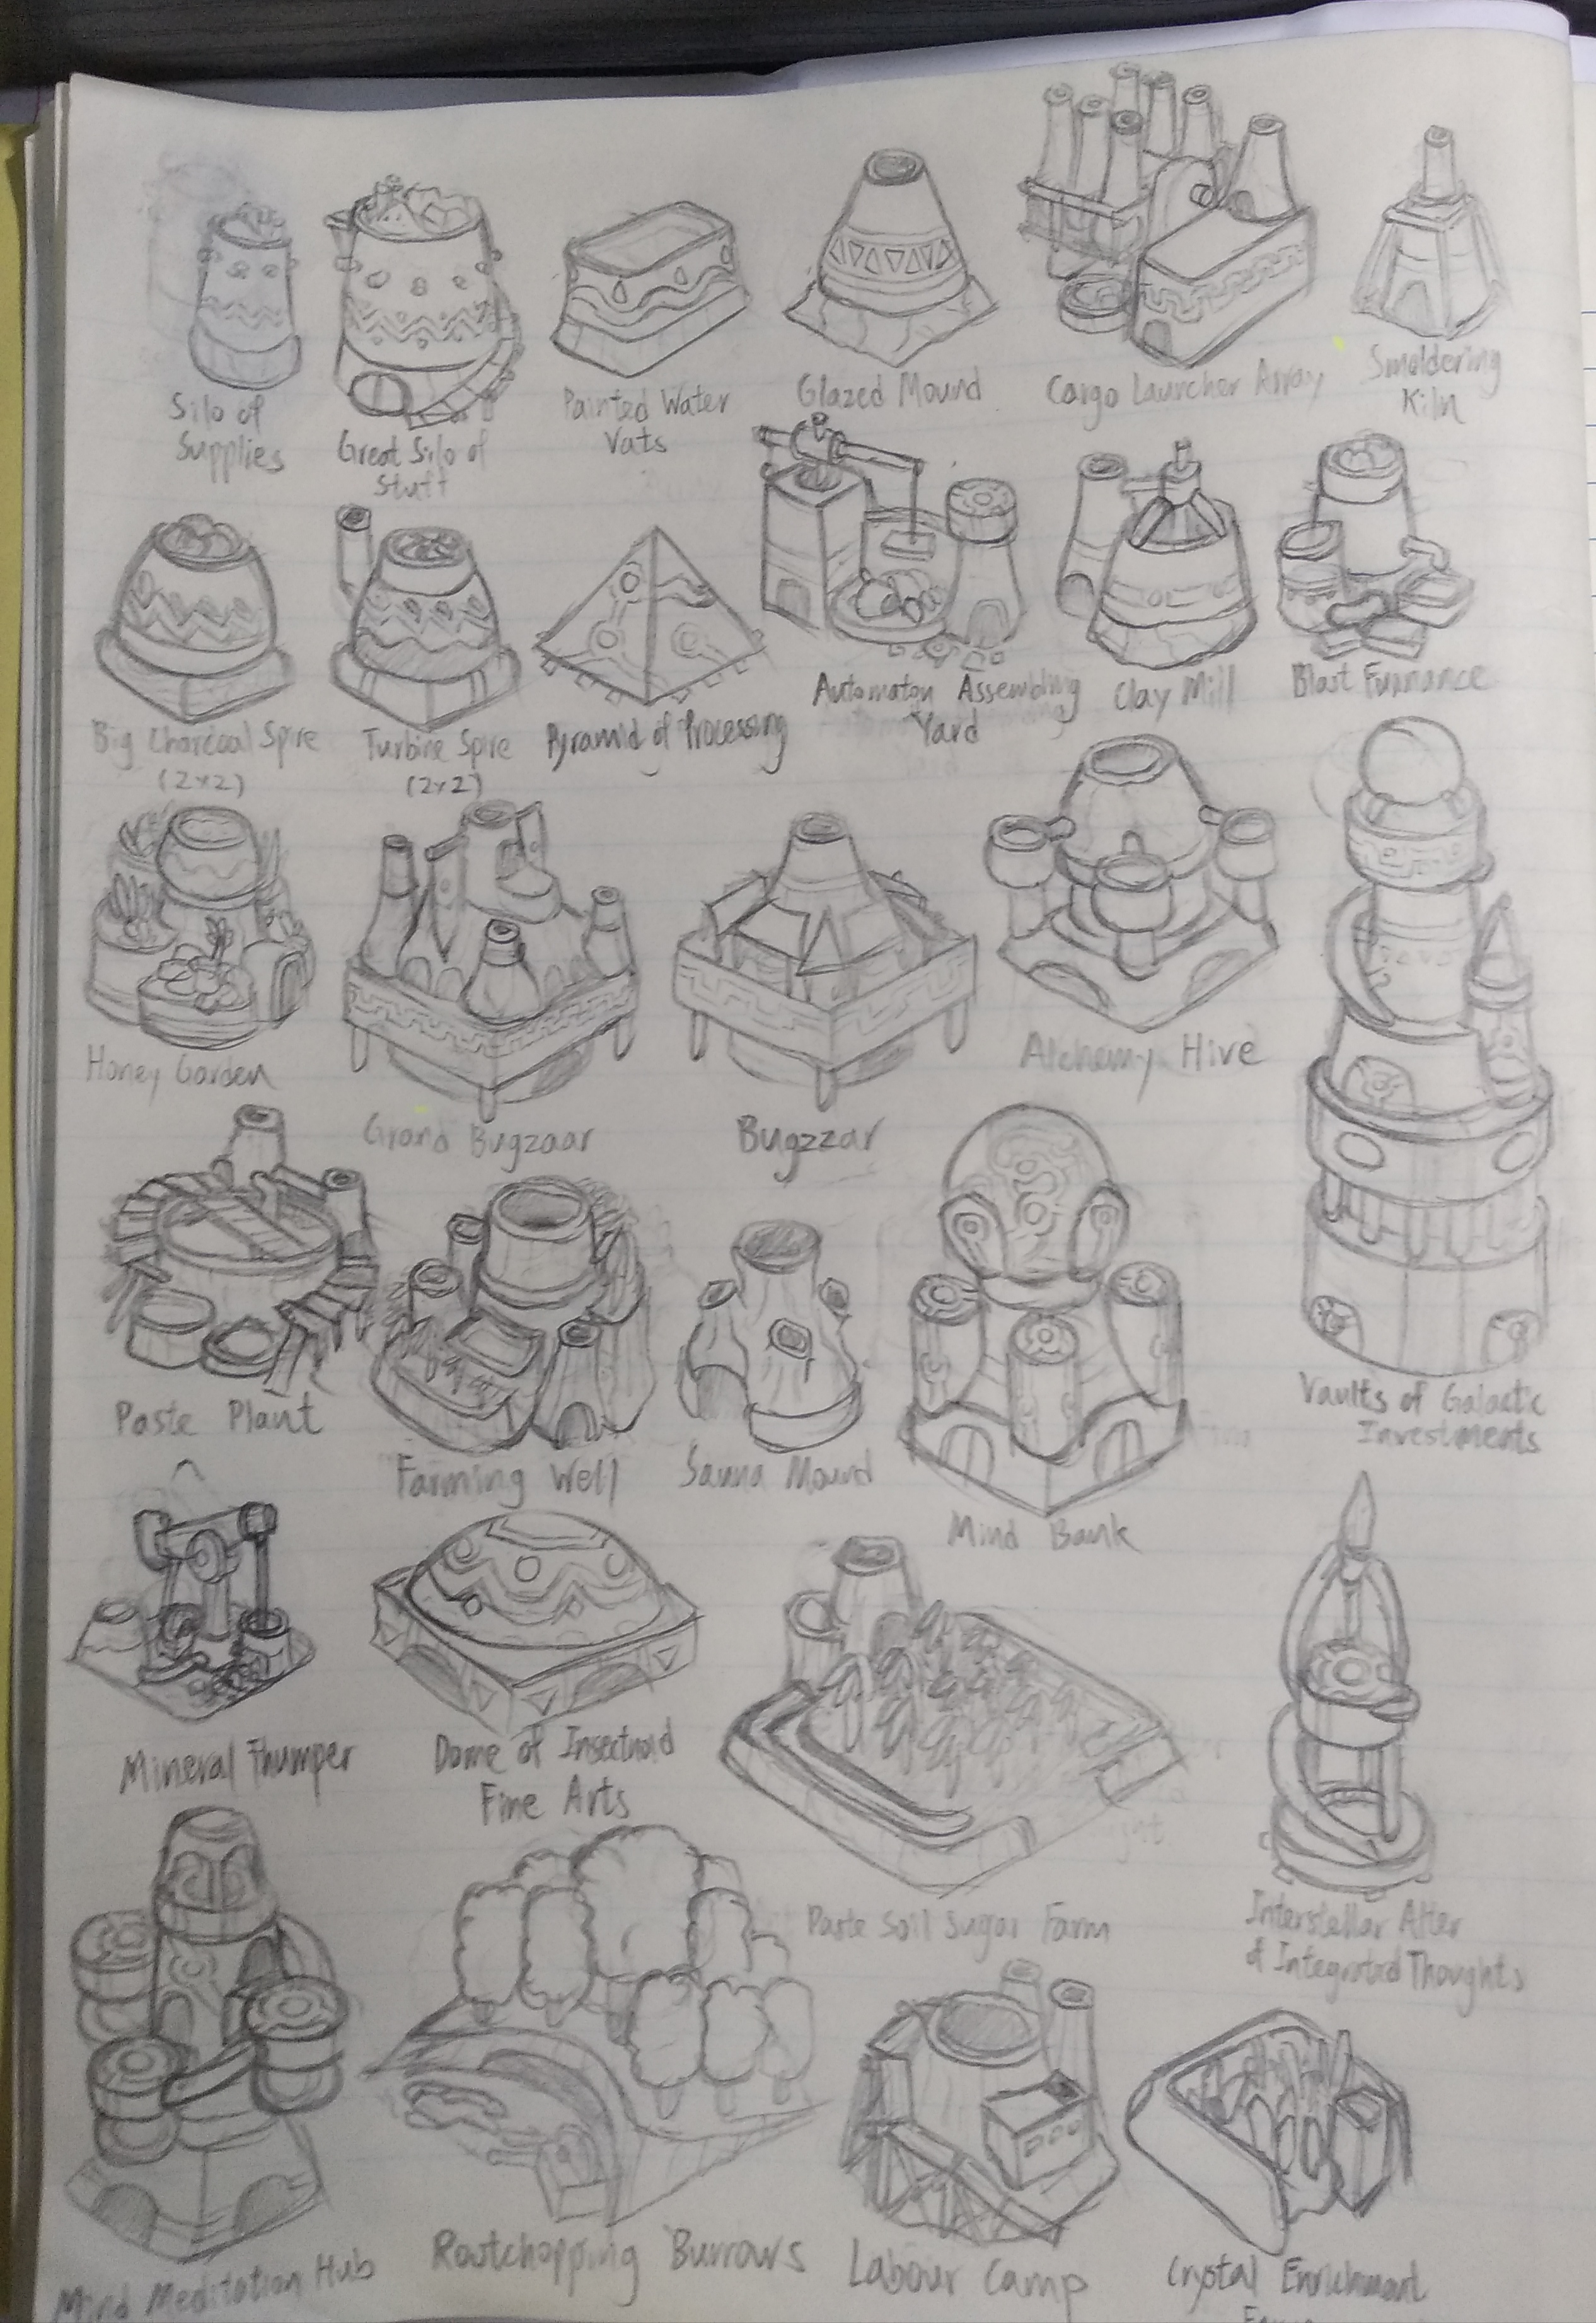 Silo of
Supplies
Great Silo of
Stuff
Painted Water
Vats
Glazed Mound
Cargo Launcher Array
Smoldering
Kiln
Big Charcoal Spire
(2x2)
Turbine Spire
(2x2)
Pyramid of Processing
Automaton Assembling
Yard
Clay Mill
Blast Funnance
Honey Garden
Grand Bugzaar
Bugzzar
Alchemy Hive
Vaults of Galactic
Investments
Paste Plant
Farming Well
Sauna Mound
Mind Bank
Mineral Thumper
Dome of Insectnoid
Fine Arts
Paste Soil Sugar Farm
Interstellar Alter
of Integrated Thoughts
Mind Meditation Hub
Rootchopping Burrows
Labour Camp
Crystal Enrichment